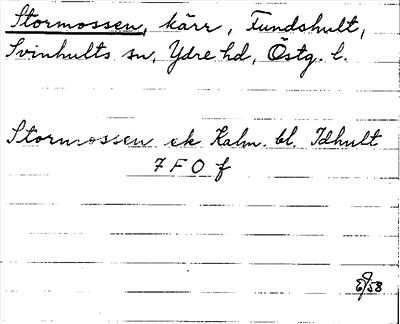 Stormossen, kärr, Fundshult,
Svinhults sn, Ydre hd, Östg. l.
Stormossen ek Kalm. bl. Idhult
7 F O f